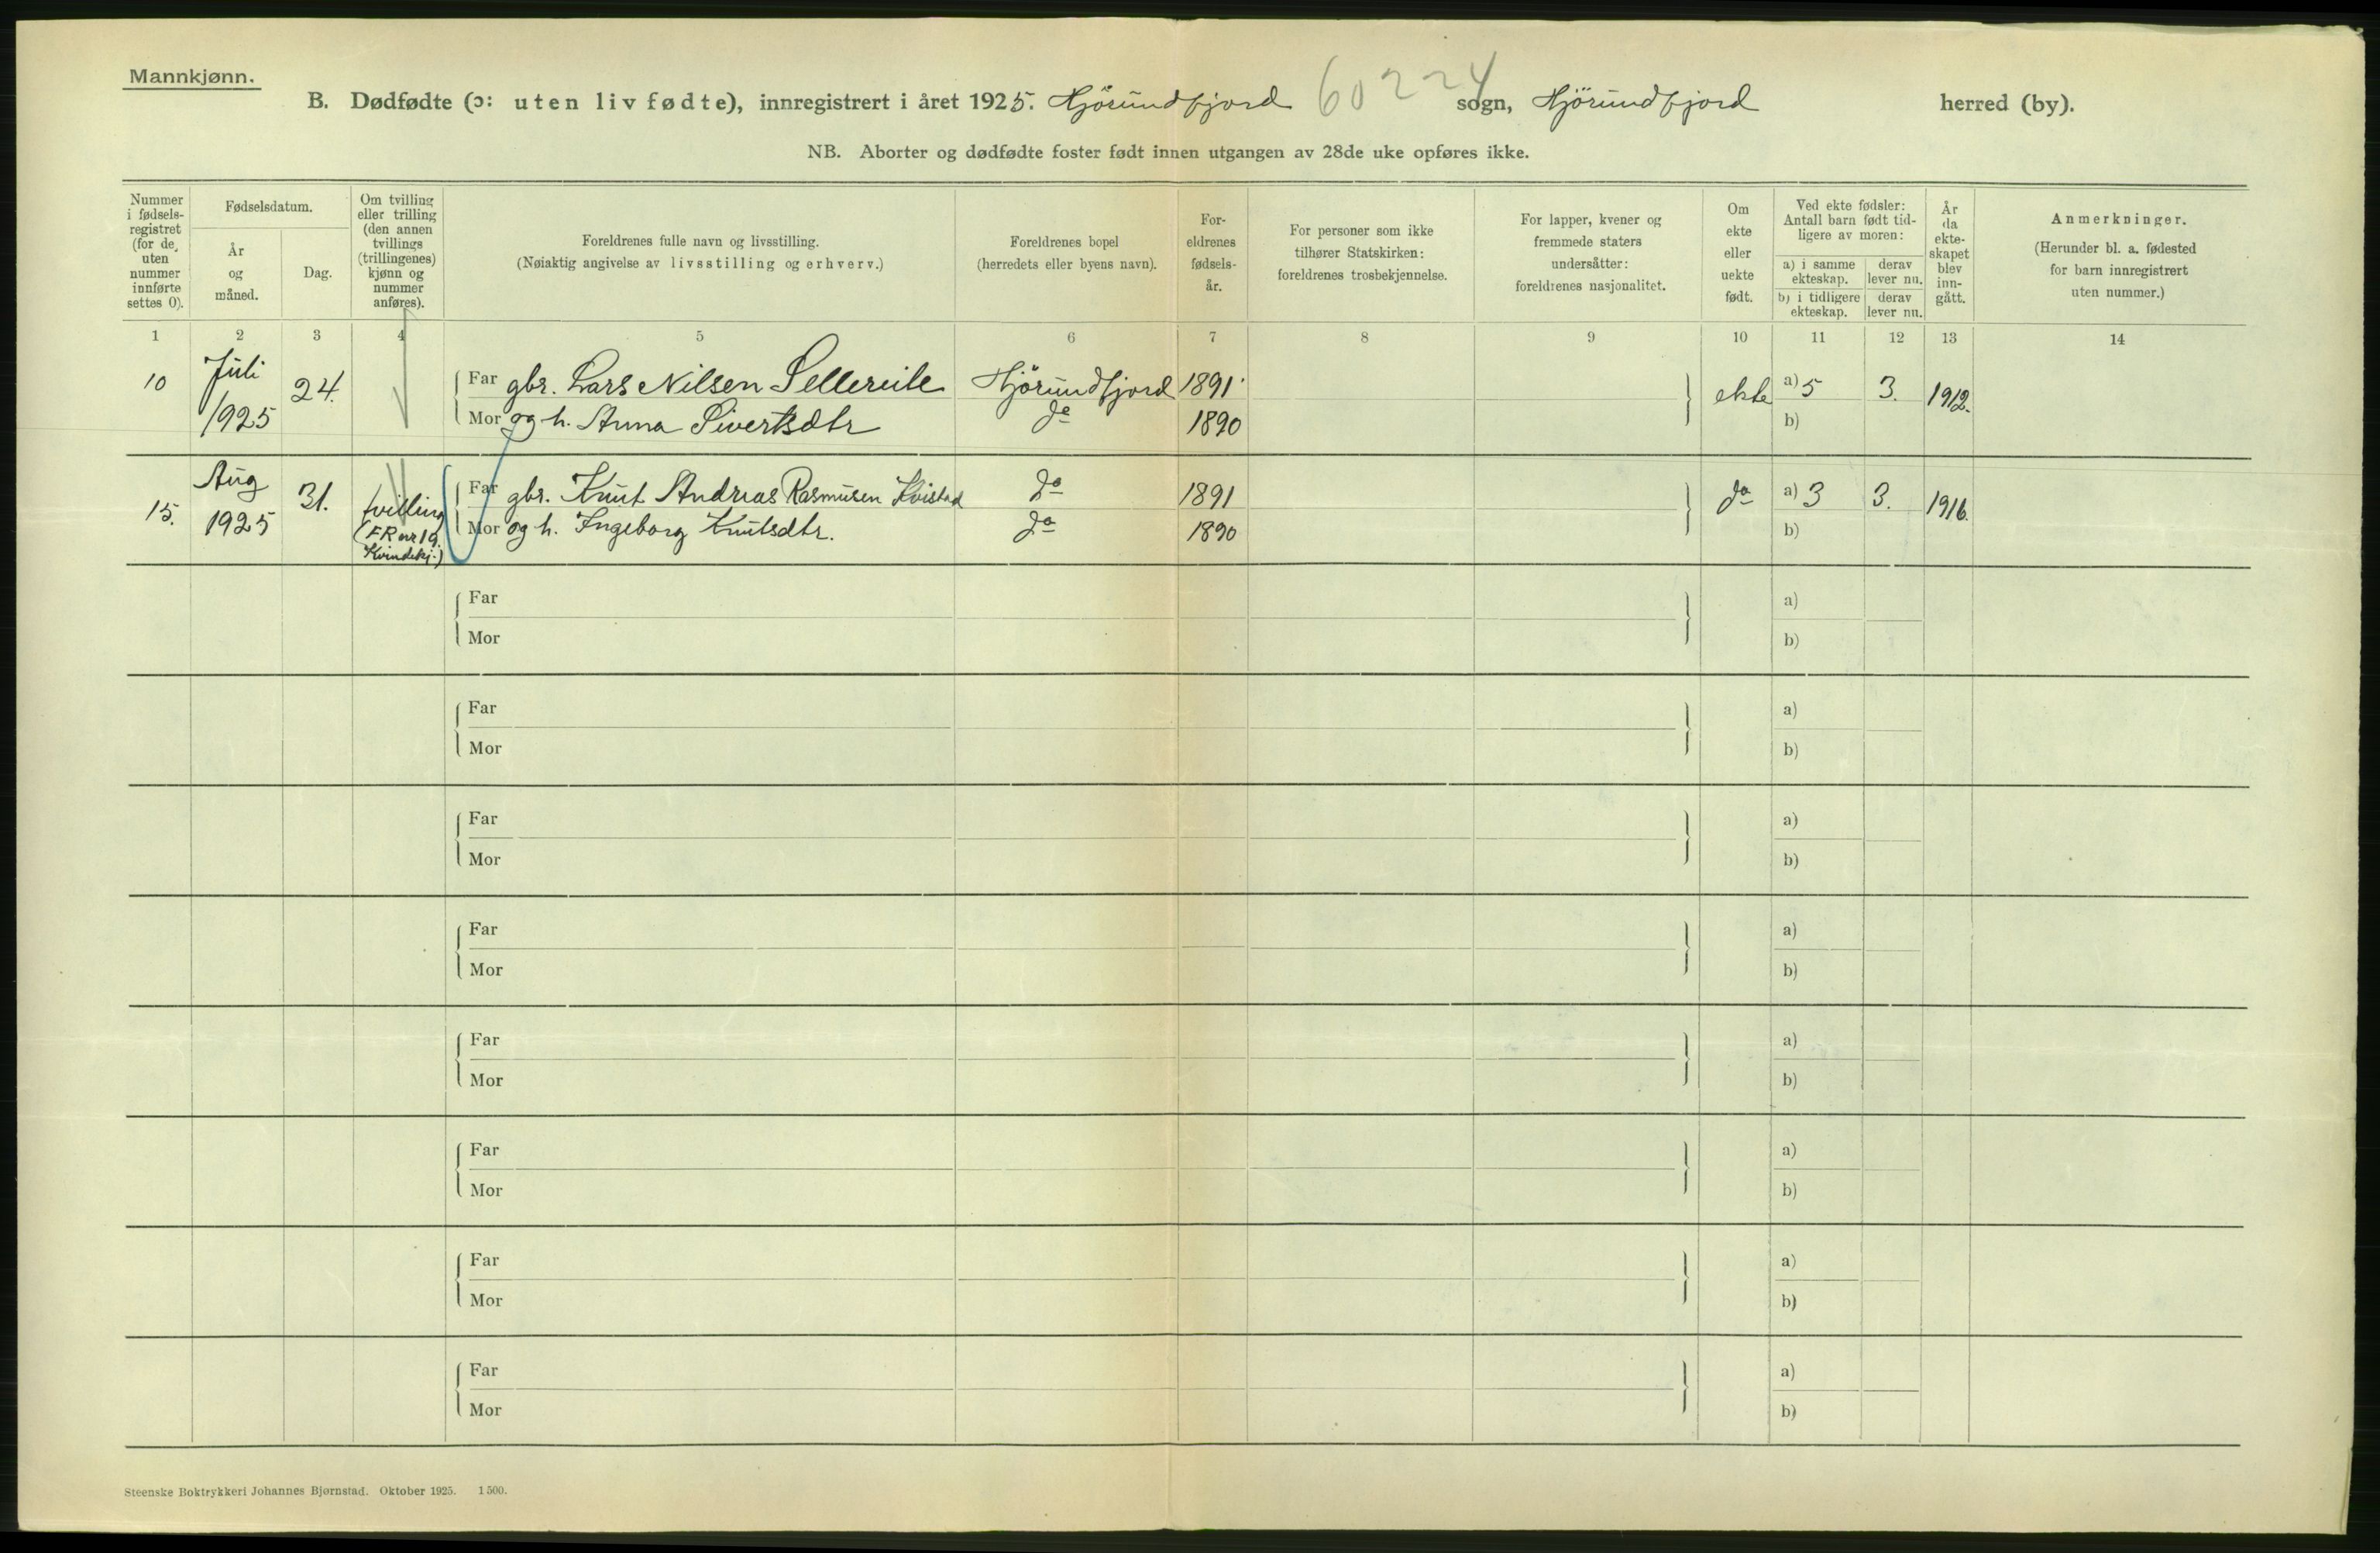 Mannkjønn.
60224
B. Dødfødte (ɔ: uten liv fødte), innregistrert i året 1925. Hjörundfjord sogn, Hjörundfjord herred (by).
NB. Aborter og dødfødte foster født innen utgangen av 28de uke opføres ikke.
Nummer
i fødsels-
registret
(for de
uten
nummer
innførte
settes 0).
Fødselsdatum.
År
og
måned.
Dag.
Om tvilling
eller trilling
(den annen
tvillings
(trillingenes)
kjønn og
nummer
anføres).
Foreldrenes fulle navn og livsstilling.
(Nøiaktig angivelse av livsstilling og erhverv.)
Foreldrenes bopel
(herredets eller byens navn).
For-
eldrenes
fødsels-
år.
For personer som ikke
tilhører Statskirken:
foreldrenes trosbekjennelse.
For lapper, kvener og
fremmede staters
undersåtter:
foreldrenes nasjonalitet.
Om
ekte
eller
uekte
født.
Ved ekte fødsler:
Antall barn født tid-
ligere av moren:
a) i samme
ekteskap.
derav
lever nu.
b) i tidligere
ekteskap.
derav
lever nu.
År
da
ekte-
skapet
blev
inn-
gått.
Anmerkninger.
(Herunder bl. a. fødested
for barn innregistrert
uten nummer.)
1 2 3 4 5 6 7 8 9 10 11 12 13 14
10 Juli 24. Far gbr. Lars Nilsen Hjörundfjord 1891 ekte a) 5 3. 1912.
1925 Mor og h. Anna Sivertsdtr do 1890 b)
15. Aug 31. tvilling Far gbr. Knut Andreas Rasmusen Kvistad do 1891 do a) 3 3. 1916.
1925 (FR nr 19. Mor og h. Ingeborg Knutsdtr. do 1890 b)
Kvindekj.)
Far a)
Mor b)
Far a)
Mor b)
Far a)
Mor b)
Far a)
Mor b)
Far a)
Mor b)
Far a)
Mor b)
Far a)
Mor b)
Far a)
Mor b)
Steenske Boktrykkeri Johannes Bjørnstad. Oktober 1925. 1500.